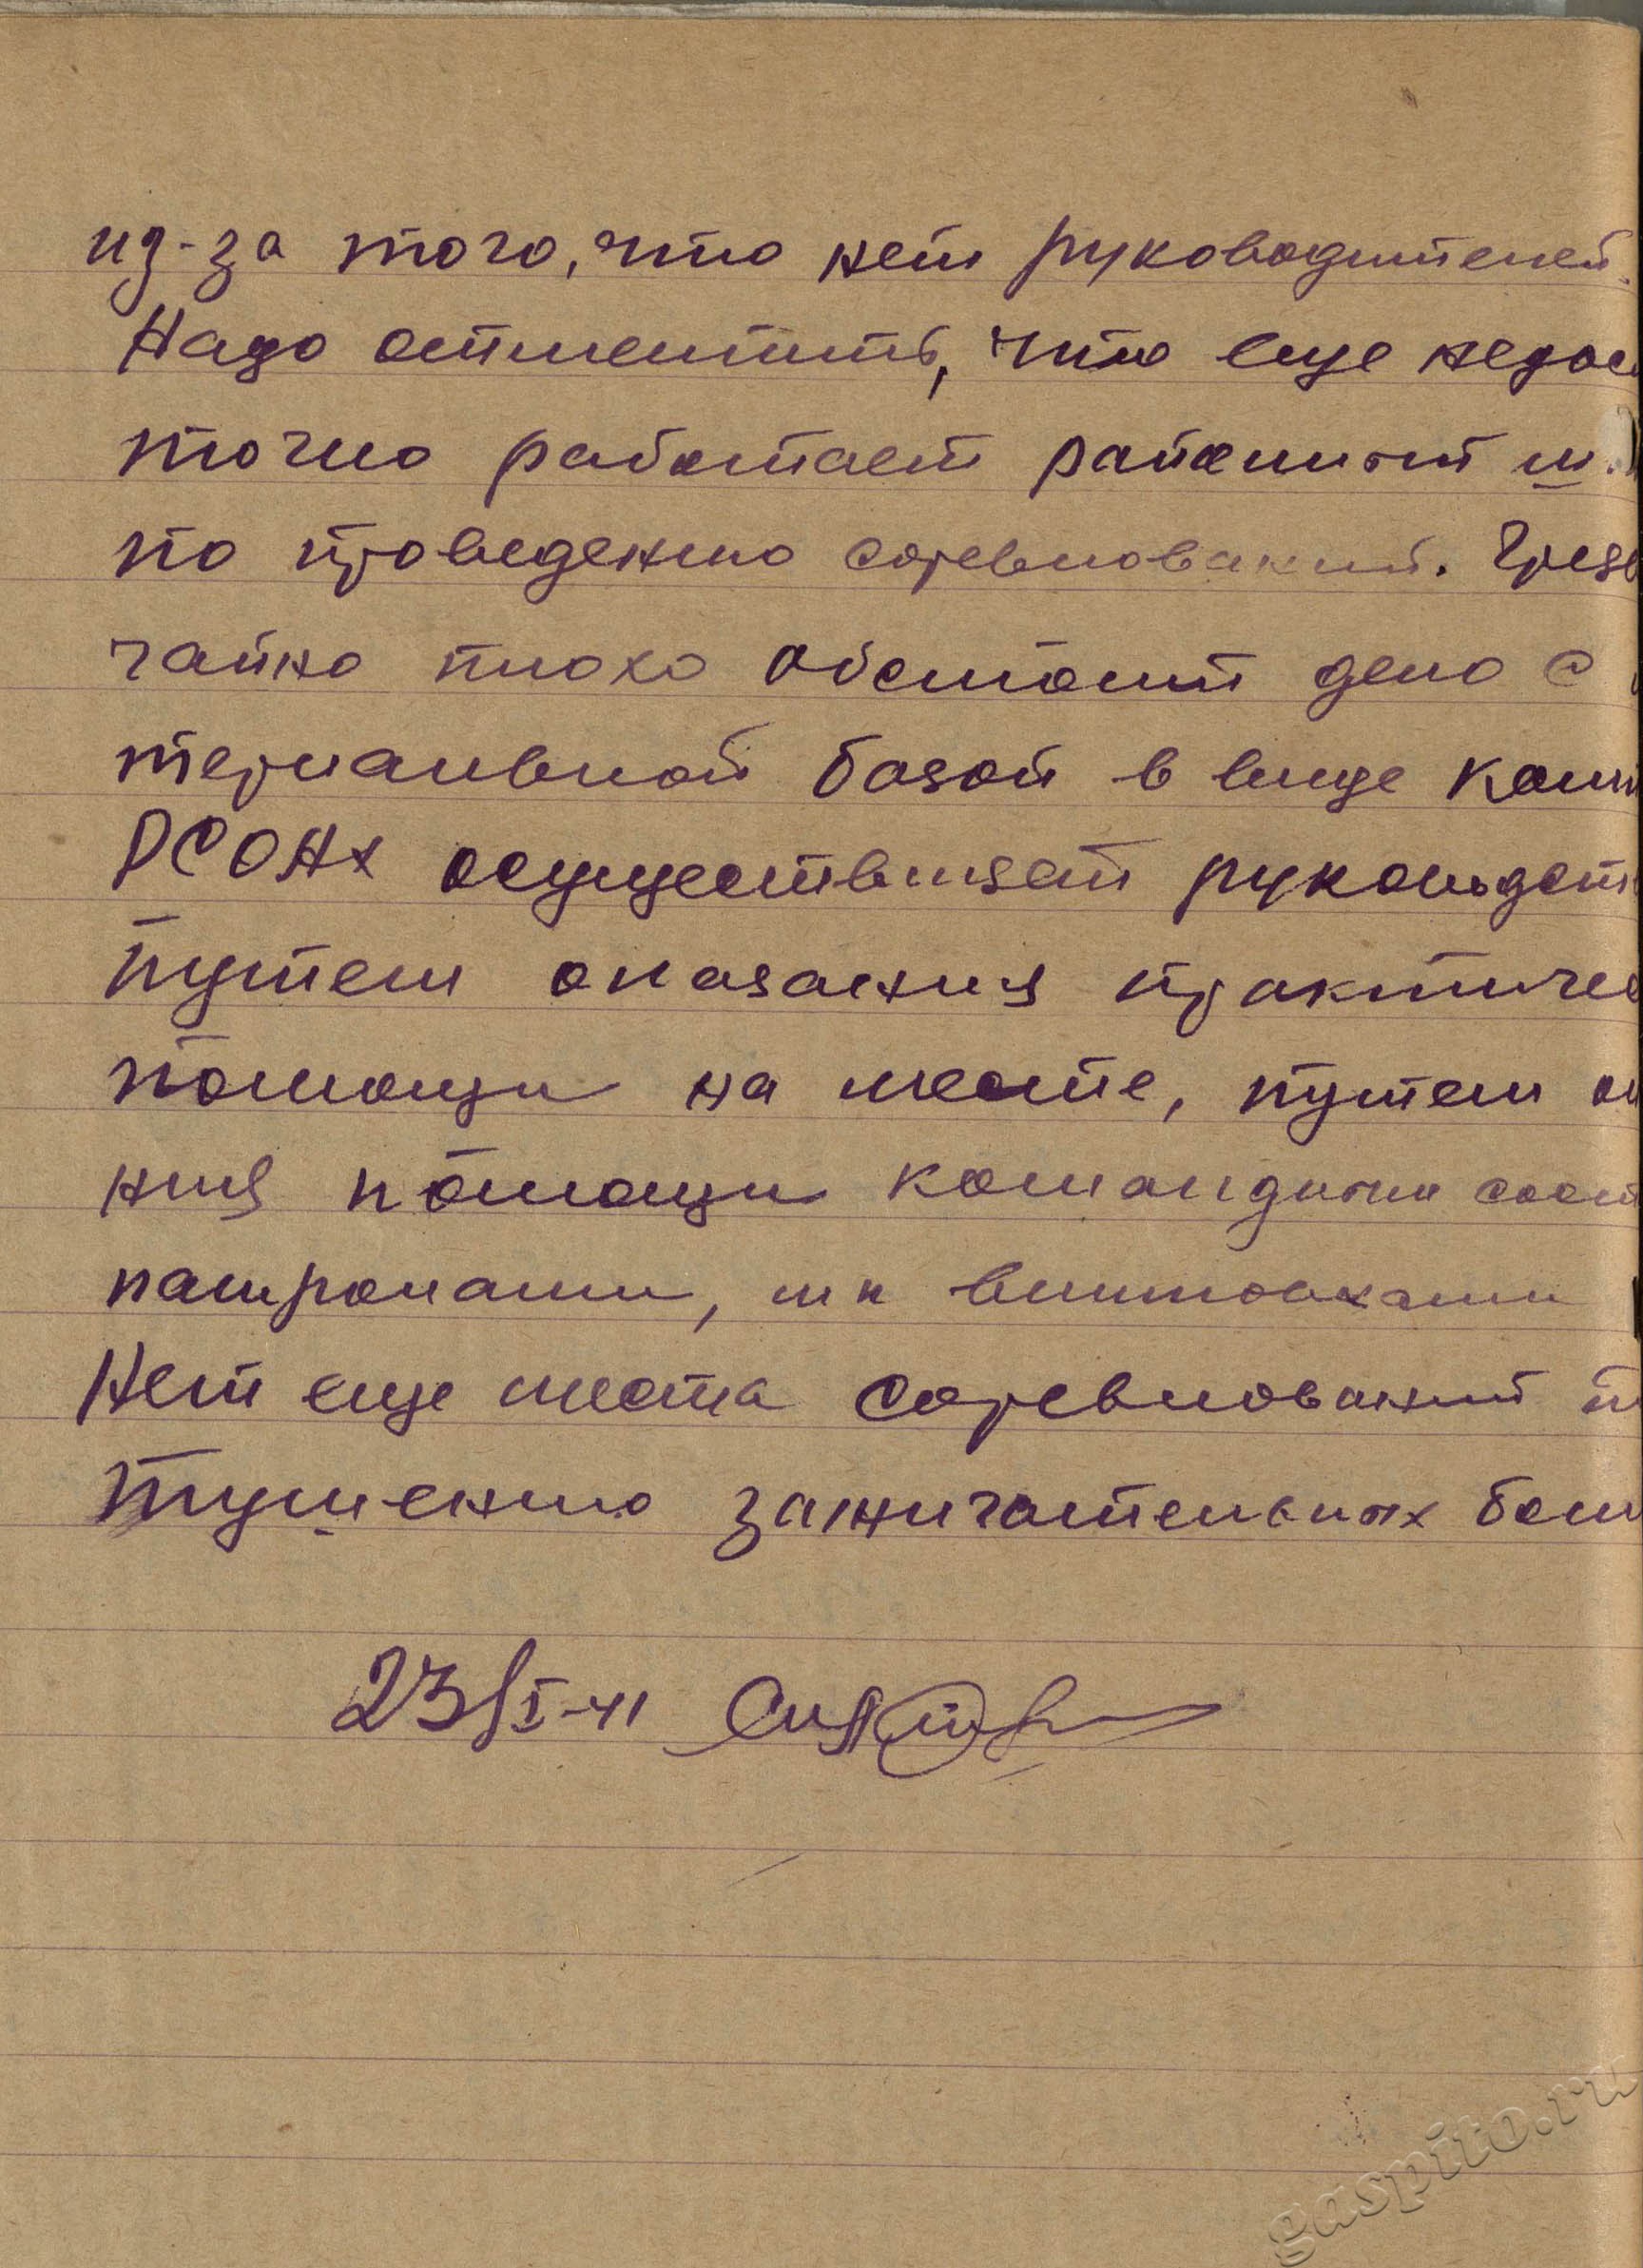 из-за того, что нет руководителей.
Надо отметить, что еще недос
точно работает районный ш.
по проведению соревнований. Чрезв
чайно плохо обстоит дело с
териальной базой в виде
РСОАХ осуществляет руководств
путем оказания практичес
помощи на месте, путем
ния помощи командным сост
патронами, мк винтовками
Нет еще места соревнований п
тушению зажигательных бом
23/I-41
gaspito.ru